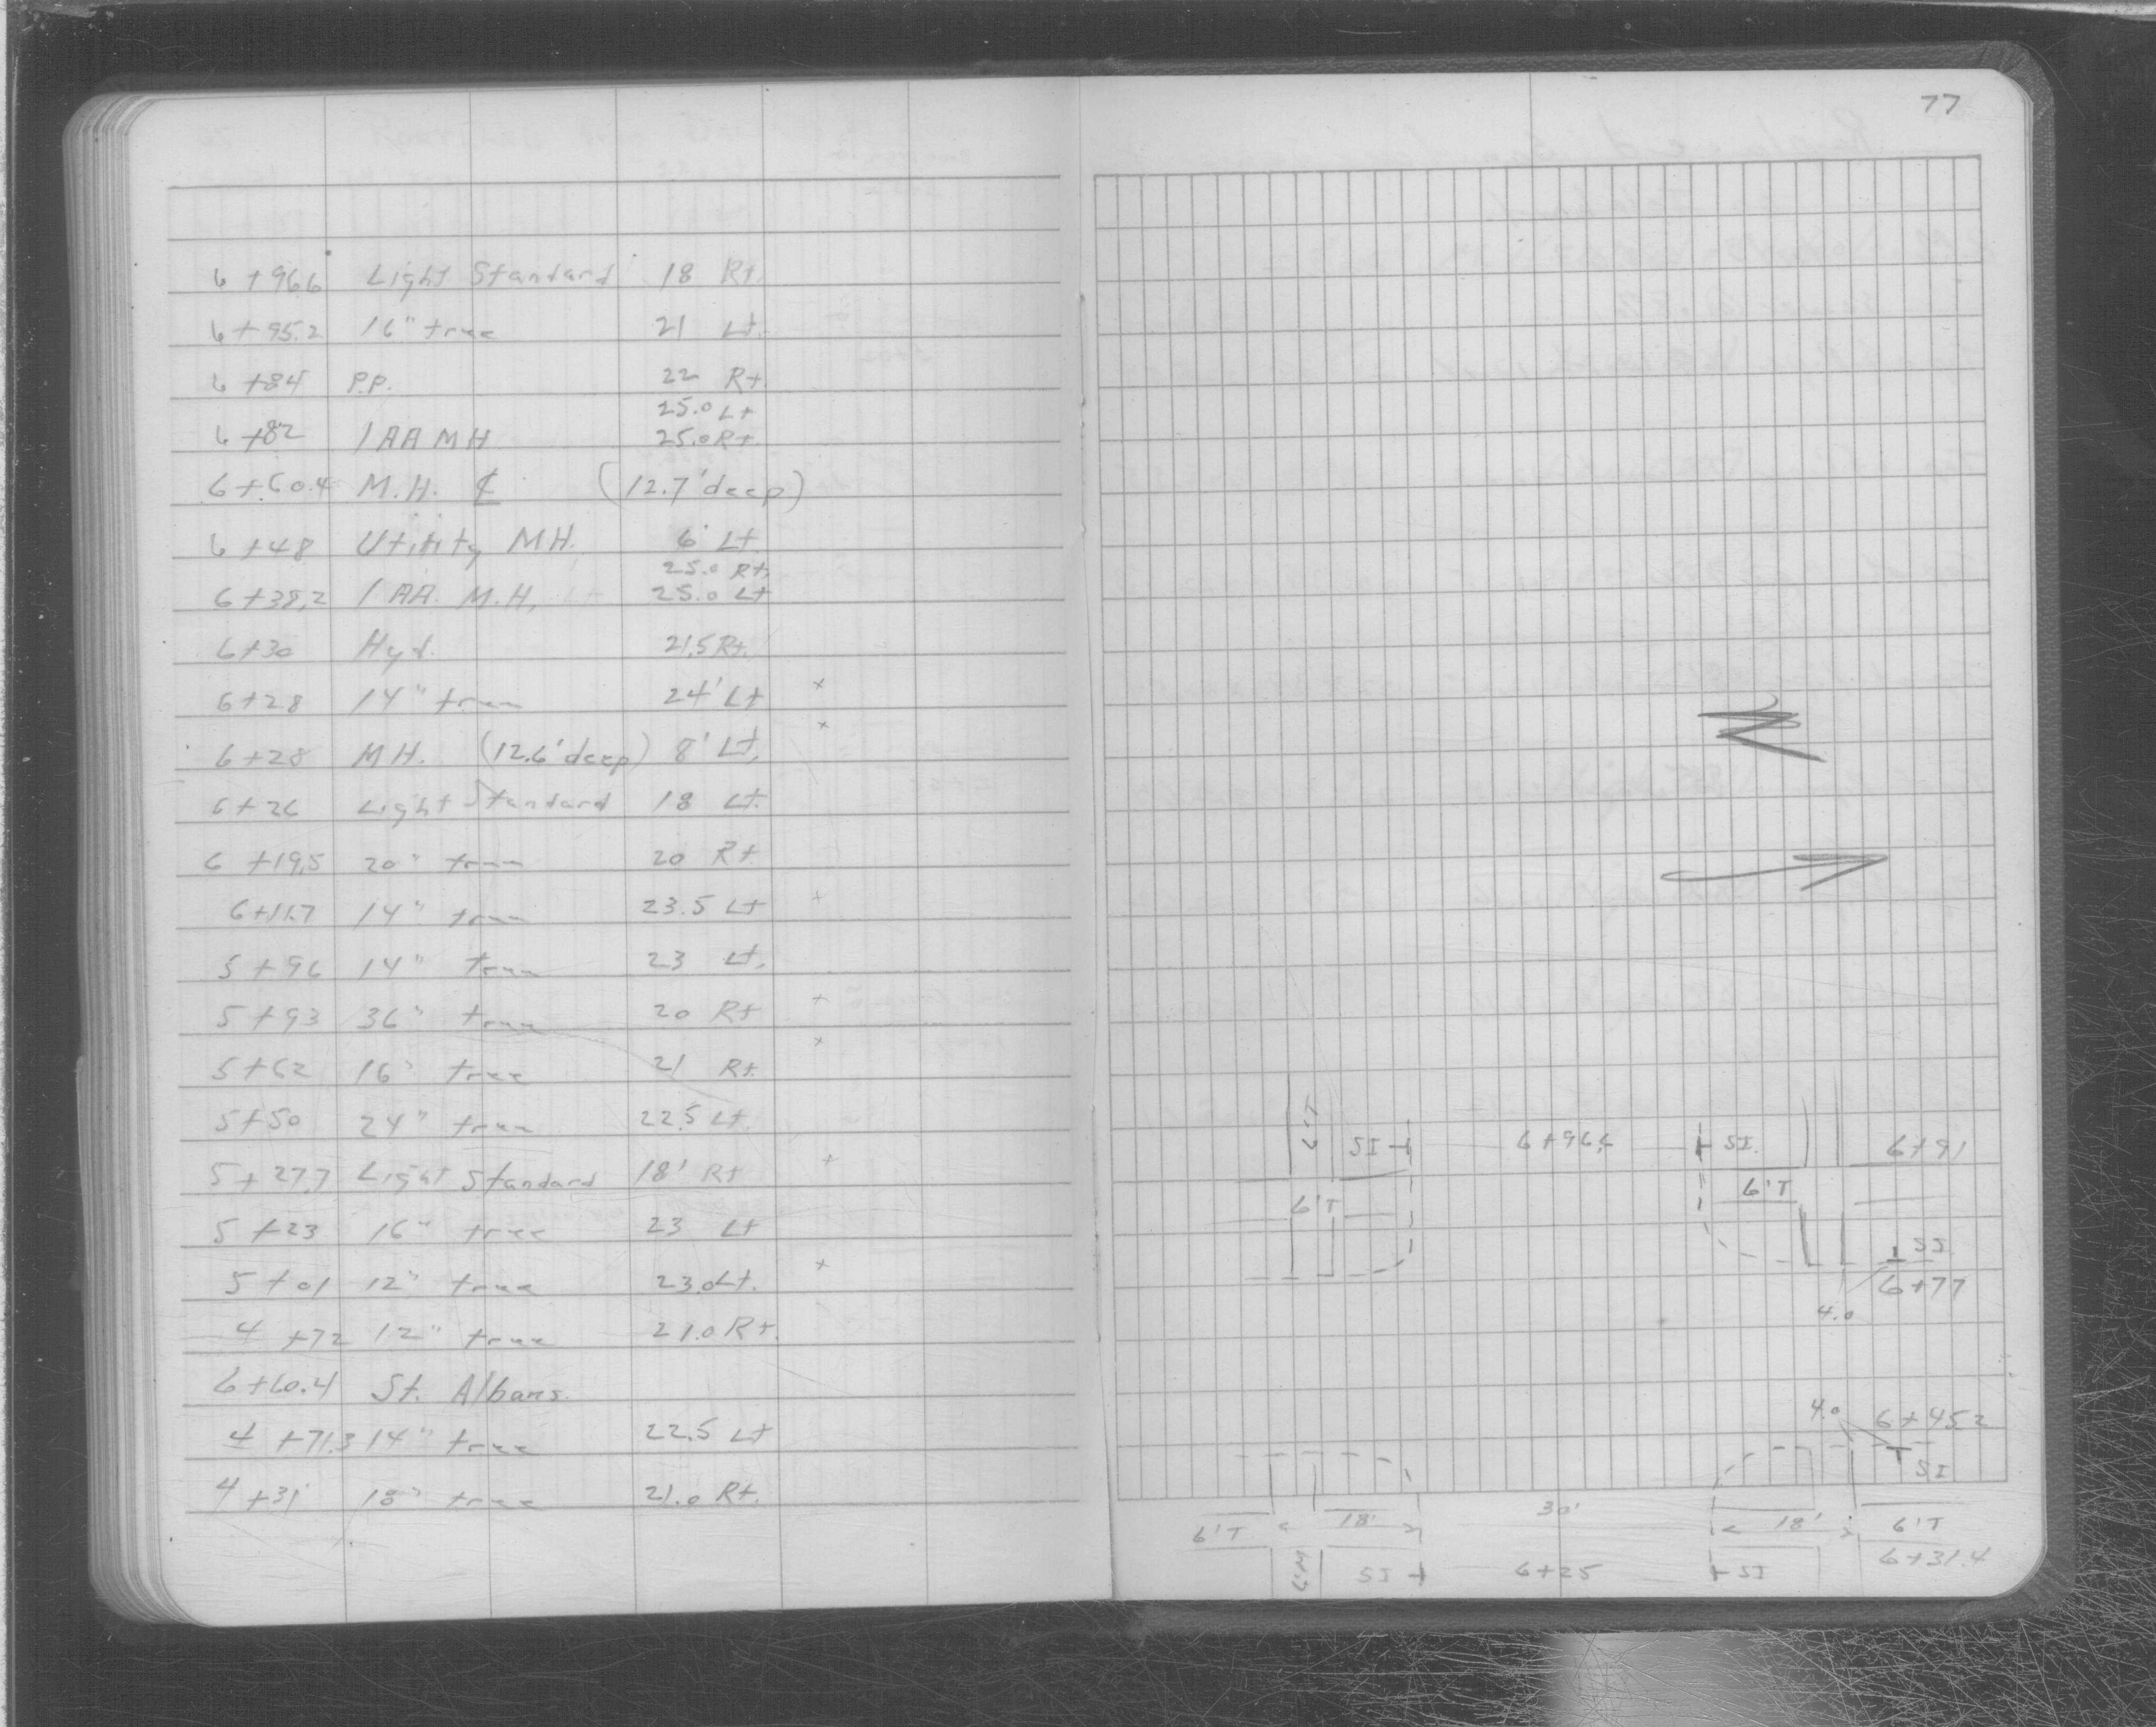 77
6+96.6 Light Standard 18 Rt.
6+95.2 16" tree 21 Lt.
6+84 P.P. 22 Rt
25.0 Lt
6+82 1 AA MH 25.0 Rt.
6+60.4 M.H. ℄ (12.7' deep)
6+48 Utility M.H. 6' Lt.
25.0 Rt.
6+38.2 1 AA. M.H. 25.0 Lt
6+30 Hyd. 21.5 Rt.
6+28 14" tree 24' Lt x
6+28 M.H. (12.6' deep) 8' Lt. x
6+26 Light Standard 18 Lt.
6+19.5 20" tree 20 Rt
6+11.7 14" tree 23.5 Lt x
5+96 14" tree 23 Lt.
5+93 36" tree 20 Rt x
5+62 16" tree 21 Rt. x
5+50 24" tree 22.5 Lt.
5+27.7 Light Standard 18' Rt x
5+23 16" tree 23 Lt
5+01 12" tree 23.0 Lt. x
4+72 12" tree 21.0 Rt.
6+60.4 St. Albans.
4+71.3 14" tree 22.5 Lt
4+31 18" tree 21.0 Rt.
6'T SI 6+96.6 SI. 6+91
6'T 6'T
SI
6+77
4.0
4.0 6+45.2
SI
6'T 18' 30' 18' 6'T
6'W SI 6+25 SI 6+31.4